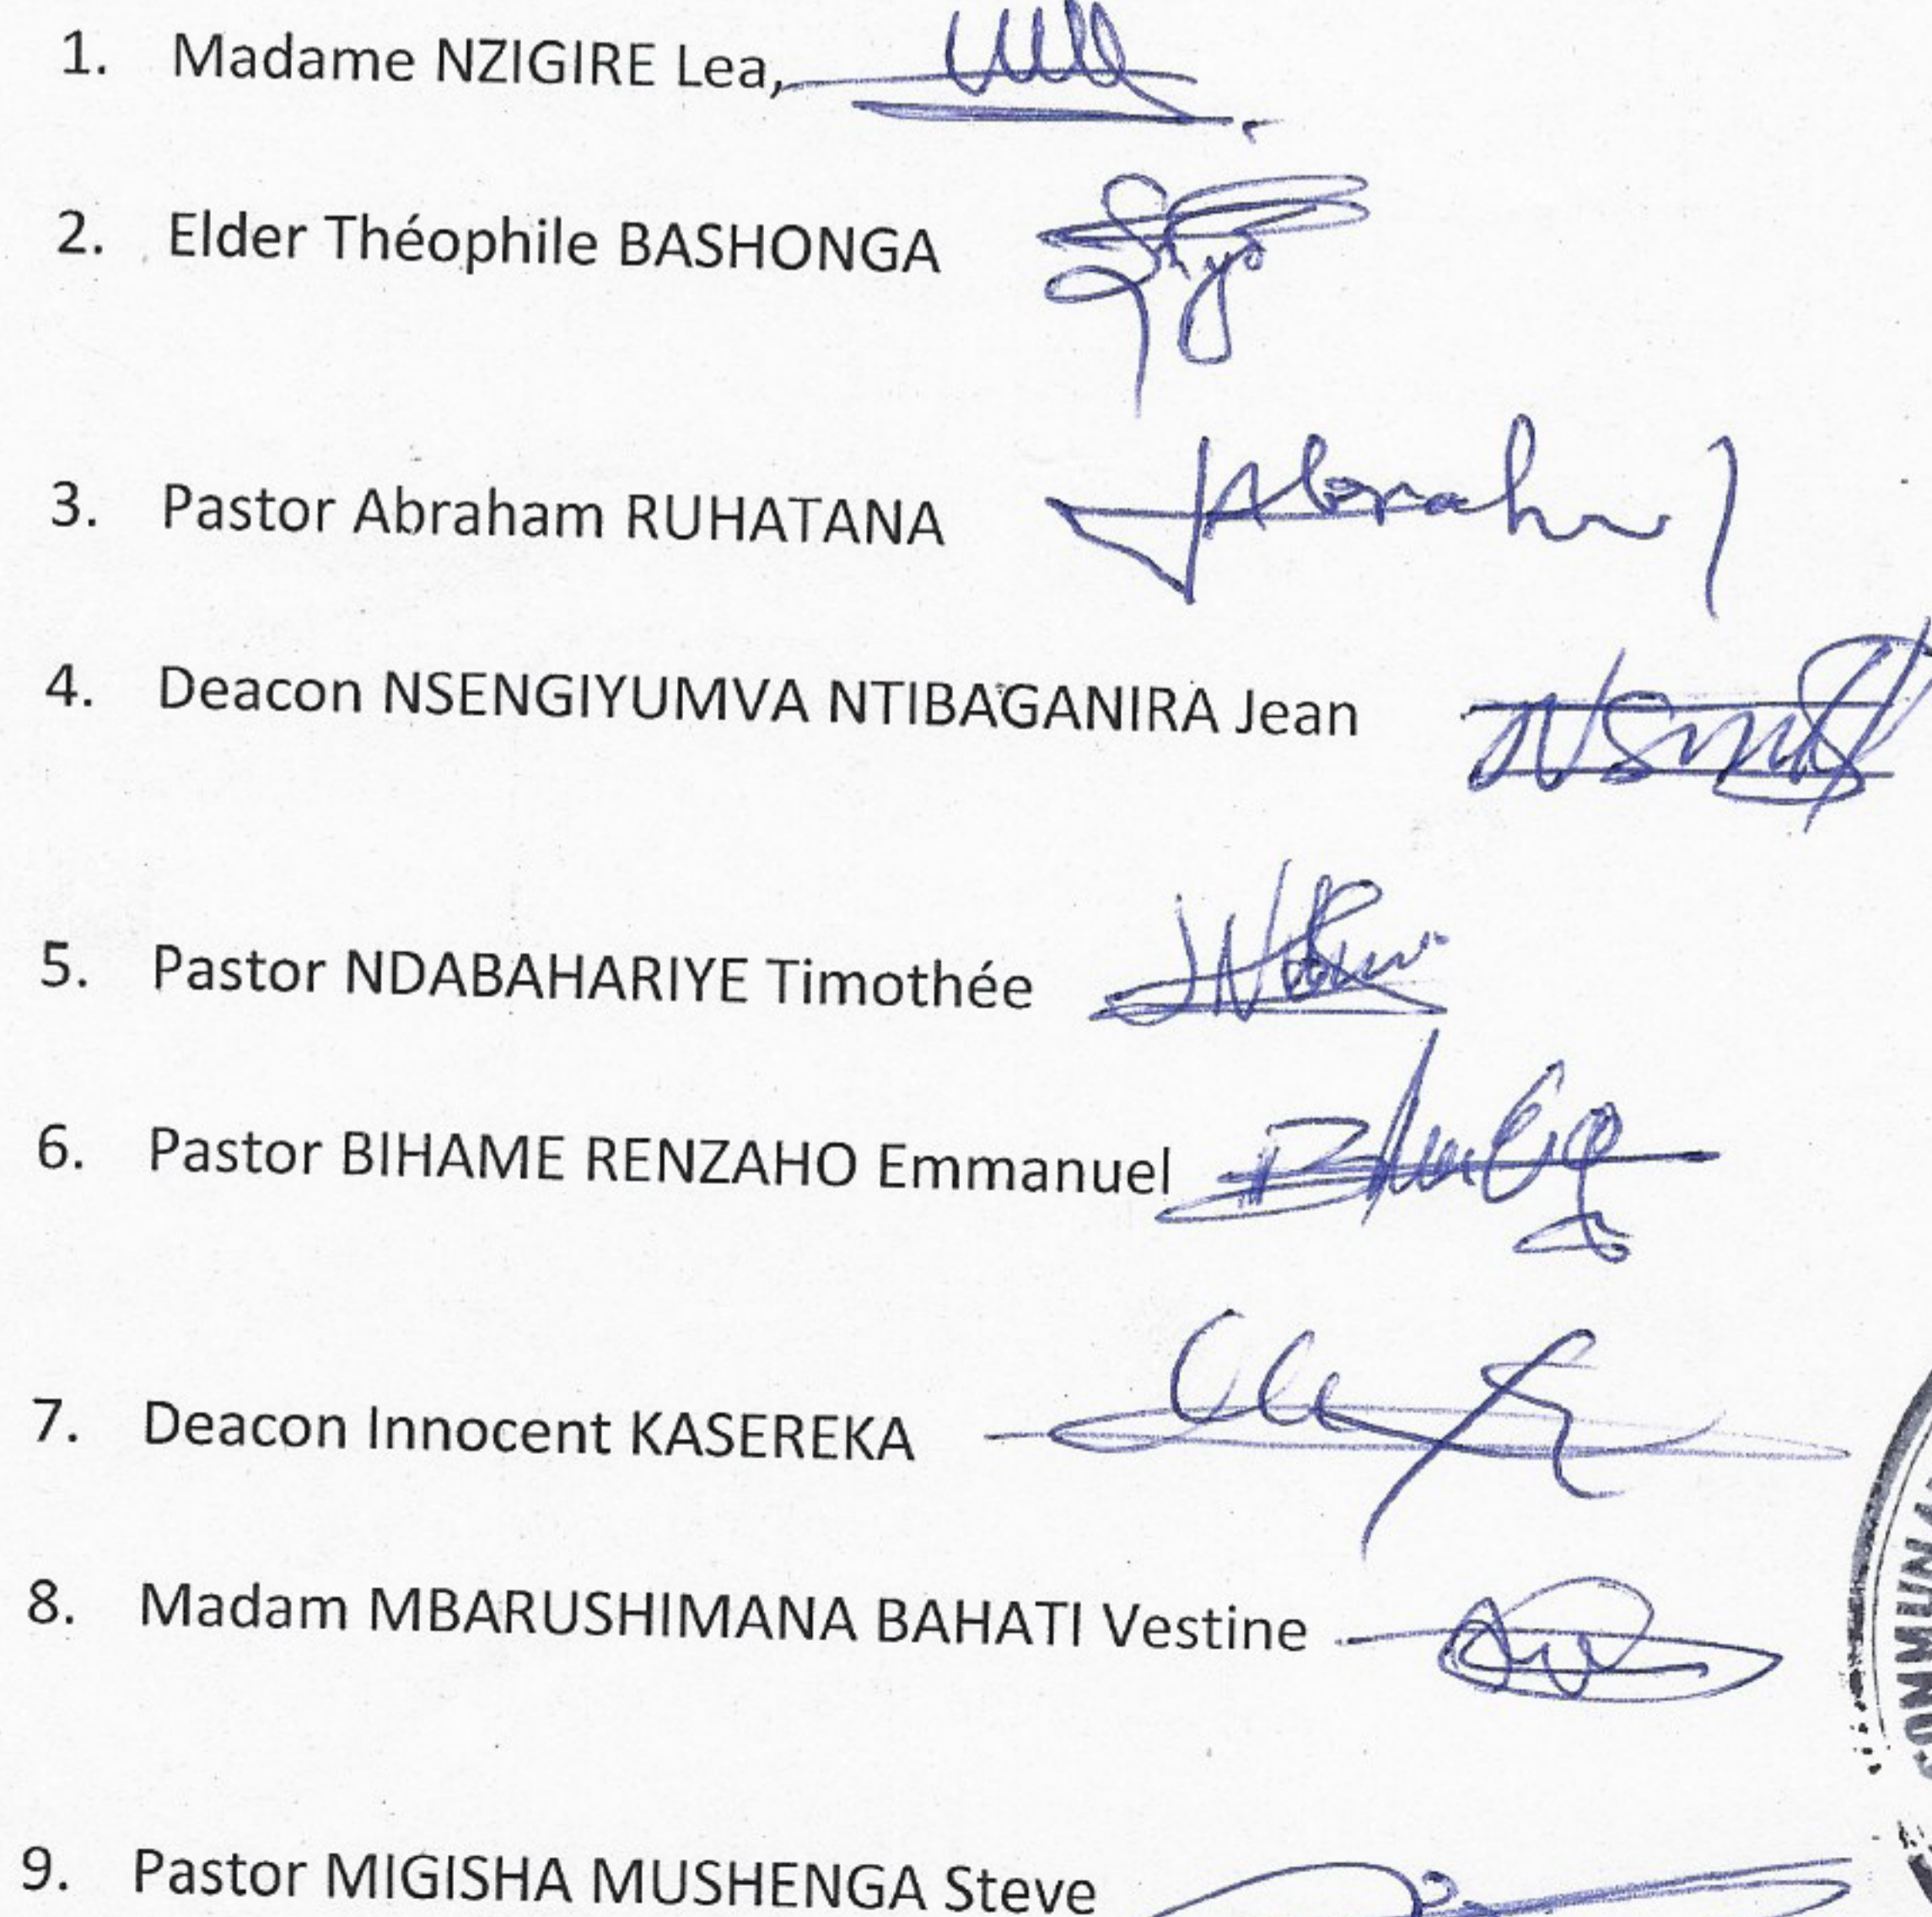 1. Madame NZIGIRE Lea,
2. Elder Théophile BASHONGA
3. Pastor Abraham RUHATANA Abraham
4. Deacon NSENGIYUMVA NTIBAGANIRA Jean
5. Pastor NDABAHARIYE Timothée
6. Pastor BIHAME RENZAHO Emmanuel
7. Deacon Innocent KASEREKA
8. Madam MBARUSHIMANA BAHATI Vestine
9. Pastor MIGISHA MUSHENGA Steve